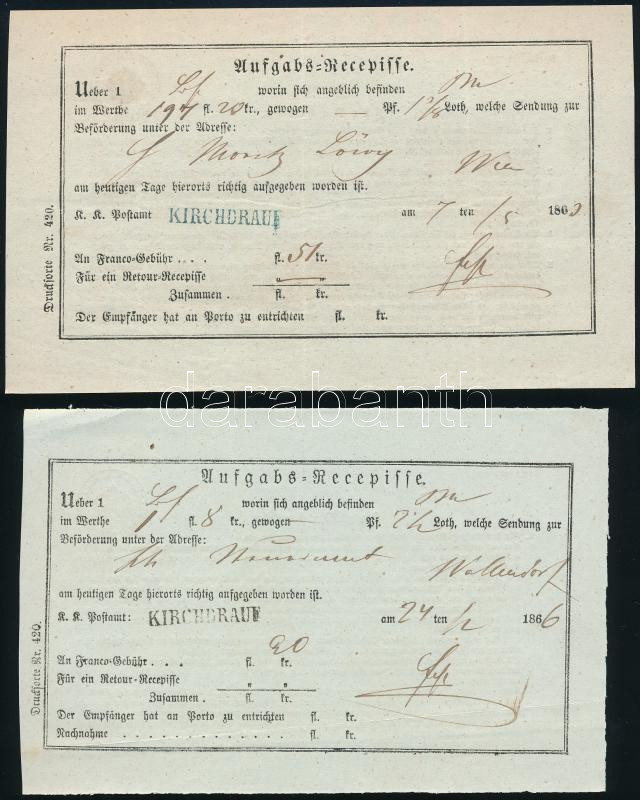 Aufgabs=Recepisse.
Ueber 1 Bf worin sich angeblich befinden
im Werthe fl. 20 kr., gewogen — Pf. Loth, welche Sendung zur
Beförderung unter der Adresse:
Moritz Löwy Wien
am heutigen Tage hierorts richtig aufgegeben worden ist.
K. K. Postamt KIRCHDRAUF am 7 ten /5 186
An Franco-Gebühr . . . fl. 51 kr.
Für ein Retour-Recepisse „ „
Zusammen . fl. kr.
Der Empfänger hat an Porto zu entrichten fl. kr.
Drucksorte Nr. 420.
darabanth
Aufgabs=Recepisse.
Ueber 1 Bf worin sich angeblich befinden
im Werthe 1 fl. 8 kr., gewogen Pf. Loth, welche Sendung zur
Beförderung unter der Adresse:
Wallendorf
am heutigen Tage hierorts richtig aufgegeben worden ist.
K. K. Postamt: KIRCHDRAUF am 24 ten 1866
20
An Franco-Gebühr . . . fl. kr.
Für ein Retour-Recepisse „ „
Zusammen . fl. kr.
Der Empfänger hat an Porto zu entrichten fl. kr.
Nachnahme . . . . . . . . . . . . . fl. kr.
Drucksorte Nr. 420.